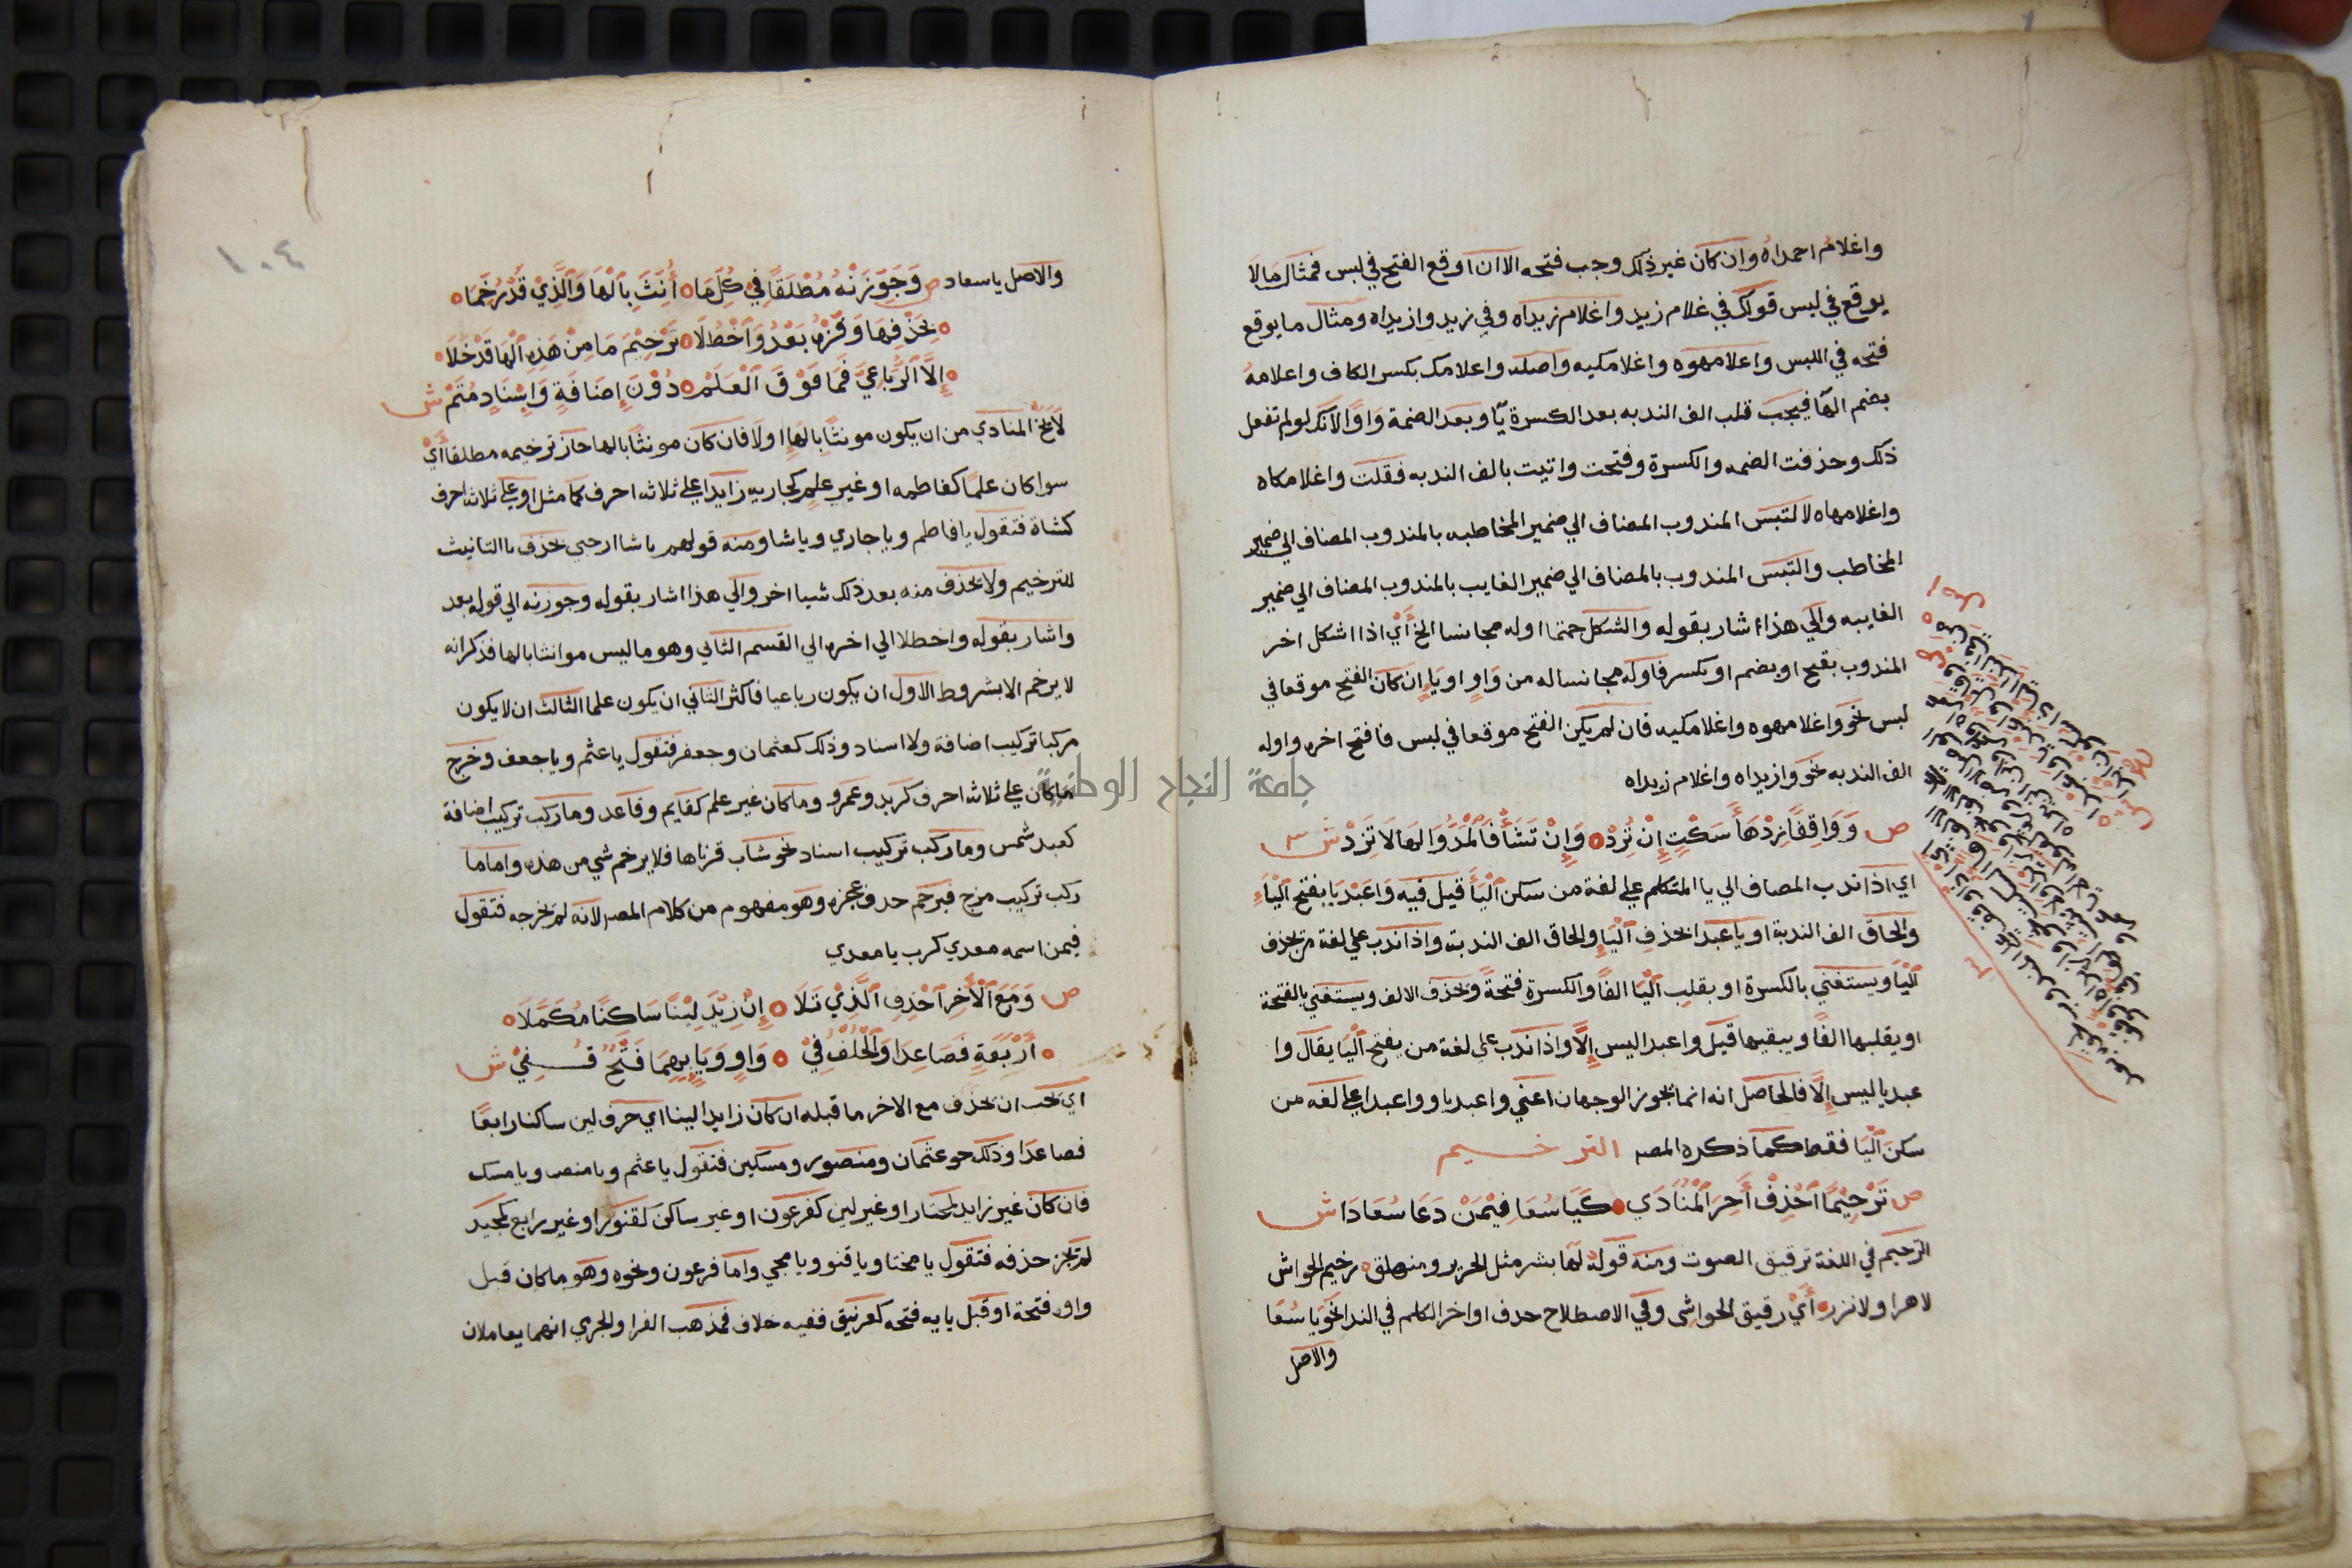 واغلام احمداه وان كان غير ذلك وجب فتحه الا ان اوقع الفتح في لبس فمثال مالا
يوقع في لبس قولك في غلام زيد واغلام زيداه وفي زيد وازيداه ومثال ما يوقع
فتحه في اللبس واغلامهوه واغلامكيه واصله واغلامك بكسر الكاف واغلامه
بضم الها فيجب قلب الف الندبه بعد الكسرة يا وبعد الضمة واوا لانك لو لم تفعل
ذلك وحذفت الضمه والكسرة وفتحت واتيت بالف الندبه فقلت واغلامكاه
واغلامهاه لالتبس المندوب المضاف الي ضمير المخاطبه بالمندوب المضاف الي ضمير
المخاطب والتبس المندوب بالمضاف الي ضمير الغايب بالمندوب المضاف الي ضمير
الغايبه والي هذا اشار بقوله والشكل حتما اوله مجانسا الخ أي اذا اشكل اخر
المندوب بفتح او بضم او بكسر فاوله مجانسا له من واو او يا ان كان الفتح موقعا في
لبس نحو واغلامهوه واغلامكيه فان لم يكن الفتح موقعا في لبس فافتح اخره واوله
الف الندبه نحو وازيداه واغلام زيداه
ص وواقفا زدها سكت إن ترد وإن تشأ فالمد والها لا تزد ش
اي اذا ندب المضاف الي يا المتكلم علي لغة من سكن اليا قيل فيه واعبديا بفتح اليا
والحاق الف الندبة او يا عبدا بحذف اليا والحاق الف الندبة واذا ندب علي لغة من يحذف
اليا ويستغني بالكسرة او بقلب اليا الفا والكسرة فتحة ويحذف الالف ويستغني بالفتحة
او يقلبها الفا ويبقيها قيل واعبدا ليس إلا واذا ندب علي لغة من يفتح اليا يقال وا
عبديا ليس إلا فالحاصل انه انما يجوز الوجهان اعني واعبديا وواعبدا علي لغه من
سكن اليا فقط كما ذكره المصـ الترخيم
ص ترخيما احذف أخر المنادي كيا سعا فيمن دعا سعادا ش
الترخيم في اللغة ترقيق الصوت ومنه قوله لها بشر مثل الحرير ومنطق رخيم الحواش
لاهرا ولا نزر أي رقيق الحواشي وفي الاصطلاح حدف اواخر الكلم في الندا نحو يا سعا
والاصل
١٠٤
والاصل يا سعاد ص وجوزنه مطلقا في كل ما أنث بالها والذي قد رخما
بحذفها وفره بعد واحظلا ترخيم ما من هذه الها قد خلا
إلا الرباعي فما فوق العلم دون إضافة وإسناد متم ش
لا يخ المنادي من ان يكون مونثا بالها او لا فان كان مونثا بالها جاز ترخيمه مطلقا أي
سوا كان علما كفاطمه او غير علم كجاريه زايدا علي ثلاثه احرف كما مثل او علي ثلاثه احرف
كشاة فتقول يا فاطم ويا جاري ويا شا ومنه قولهم يا شا ارجي بحذف تا التانيث
للترخيم ولا يحذف منه بعد ذلك شيا اخر والي هذا اشار بقوله وجوزنه الي قوله بعد
واشار بقوله واحظلا الي اخره الي القسم الثاني وهو ما ليس مونثا بالها فذكر انه
لا يرخم الا بشروط الاول ان يكون رباعيا فاكثر الثاني ان يكون علما الثالث ان لا يكون
مركبا تركيب اضافة ولا اسناد وذلك كعثمان وجعفر فتقول يا عثم ويا جعف وخرج
ما كان علي ثلاثه احرف كزيد وعمرو وما كان غير علم كقايم وقاعد وما ركب تركيب اضافة
كعبد شمس وما ركب تركيب اسناد نحو شاب قرناها فلا يرخم شي من هذه واما ما
ركب تركيب مزج فيرخم حدف عجزه وهو مفهوم من كلام المصـ لانه لم يخرجه فتقول
فيمن اسمه معدي كرب يا معدي
ص ومع الأخر احذف الذي تلا إن زيد لينا ساكنا مكملا
أربعة فصاعدا والخلف في واو ويا بهما فتح قفي ش
اي يجب ان يحذف مع الاخر ما قبله ان كان زايدا لينا اي حرف لين ساكنا رابعا
فصاعدا وذلك نحو عثمان ومنصور ومسكين فتقول يا عثم ويا منص ويا مسك
فان كان غير زايد كمختار او غير لين كفرعون او غير ساكن كقنور او غير رابع كمجيد
لم يجز حذفه فتقول يا مختا ويا قنو ويا مجي واما فرعون ونحوه وهو ما كان قبل
واوه فتحة او قبل يايه فتحه كغرنيق ففيه خلاف فمذهب الفرا والجرمي انهما يعاملان
جامعة النجاح الوطنية